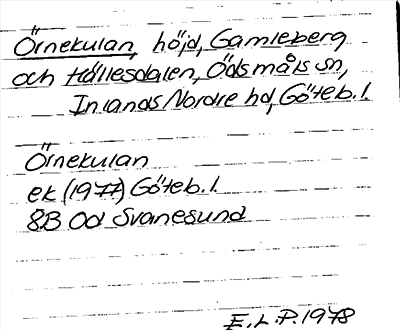 Örnekulan, höjd, Gamleberg
och Hällesdalen, Ödsmåls sn,
Inlands Nordre hd, Göteb. l.
Örnekulan
ek (1977) Göteb. l.
8B 0d Svanesund
E. L. P. 1978